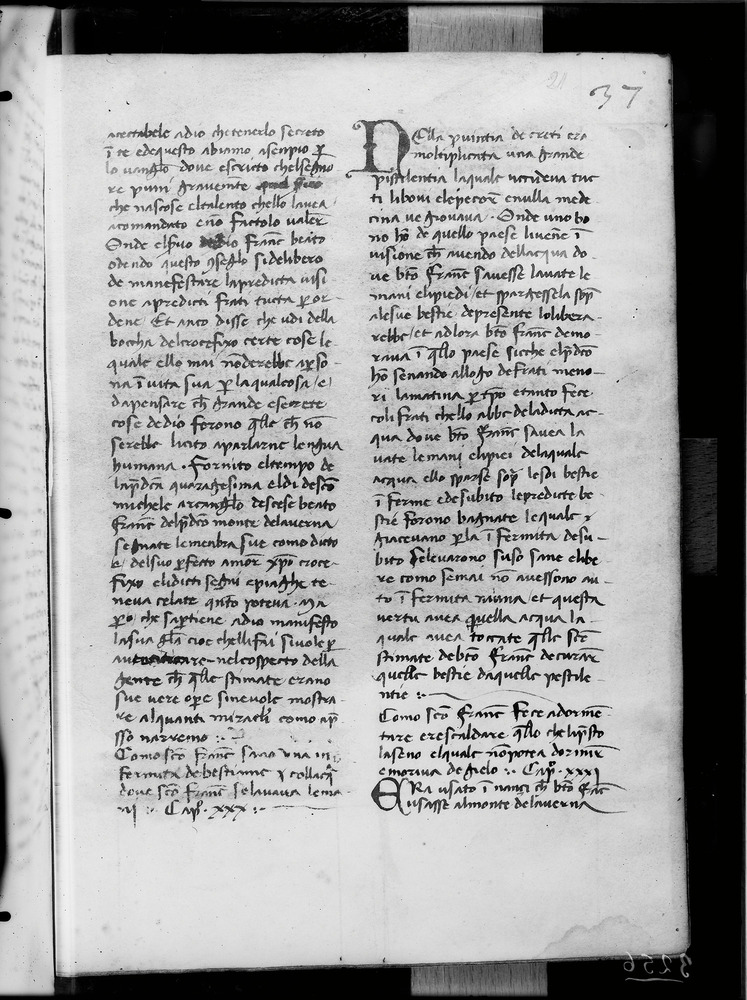 37
acectabele adio che tenerlo secreto
ī te ede questo abiamo asenpio p̱
lo vangl̄o dove escricto chelsegno
re puni gravemte
che nascose eltalento chello lavea
acomandato eñō factolo valer̄
Onde elsuo dedio Franc̄ beato
odendo questo ɔseglo si delibero
de manefestare la predicta visi
one apredicti frati tucta p̱ or
dene Et anco disse che udi della
boccha del crocefixo certe cose le
quale ello mai nōderebbe ap̱so
na ī vita sua p̱ laqualcosa /e/
dapensare ch̄ grande esecrete
cose dedio forono q̄lle ch̄ nō
serebbe licito aparlarne lengua
humana · Fornito eltempo de
lap̄dc̄a quaragesima eldi desc̄o
michele arcangl̄o descese beato
Franc̄ delp̄dc̄o monte delaverna
segnate lemenbra sue como dicto
e delsuo p̱fecto amor̄ xp̄o croce
fixo elidicti segni epiaghe te
neva celate qn̄to poteva · Ma
p̱o che sap̱tiene adio manifesto
lasua gl̄a cioe chelli fai si vole p̱
nelcospecto della
gente ch̄ q̄lle stimate erano
sue vere op̱e sinevole mostra
re alquanti miracli como ap̄
sso narremo :~
Como sc̄o Franc̄ sano una in
fermita de bestiame ɔ collacq̄
dove sc̄o Franc̄ selavava lema
ni :· Cap̱o · xxx :~
DElla p̱vincia de creti era
moltiplicata una grande
pistelentia laquale uccideva tuc
ti li bovi elepecor̄ enulla mede
cina ve giovava · Onde uno bo
no ho de quello paese livenē ī
visione ch̄ avendo dellacqua do
ve bt̄o Franc̄ savesse lavate le
mani elipiedi / et spargessela sop̱
alesue bestie depresente lolibera
rebbe / et adlora bt̄o Franc̄ demo
rava ī q̄llo paese sicche elp̄dc̄o
ho senando allogo de frati meno
ri lamatina p̱ tp̄o etanto fece
coli frati chello abbe deladicta ac
qua dove bt̄o Franc̄ savea la
vate lemani elipiei delaquale
acqua ello sparse sop̱ lesoi bestie
ī ferme edesubito lepredicte be
stie forono bagnate lequale
giacevano p̱ la ī fermita desu
bito selevarono suso sane elibe
re como semai nō avessono au
to ī fermita niuna / et questa
vertu avea quella acqua la
quale avea toccate q̄lle sc̄e
stimate debt̄o Franc̄ decurar̄
quelle bestie daquelle pestile
ntie :~
Como sc̄o Franc̄ Fece adorme
tare erescaldare q̄llo che lip̱sto
laseno elquale nōpotea dormir̄
emoriva degielo :· Cap̱o · xxxi
ERa usato ī nanci ch̄ bt̄o Frāc
usasse almonte delaverna
3256